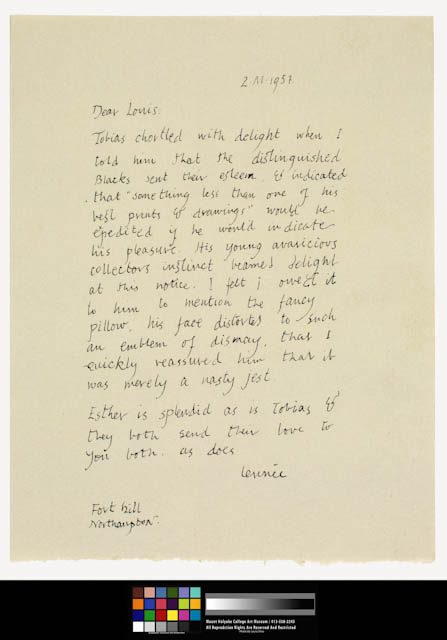 2.VI.1957.
Dear Louis.
Tobias chortled with delight when I
told him that the distinguished
Blacks sent their esteem, & indicated
that "something less than one of his
best prints & drawings" would be
epedited if he would indicate
his pleasure. His young avaricious
collectors instinct beamed delight
at this notice. I felt I owed it
to him to mention the fancy
pillow. his face distorted to such
an emblem of dismay, that I
quickly reassured him that it
was merely a nasty jest.
Esther is splendid as is Tobias &
they both send their love to
you both. as does
Fort hill
Northampton.
Mount Holyoke College Art Museum / 413-538-2245
All Reproduction Rights Are Reserved And Restricted